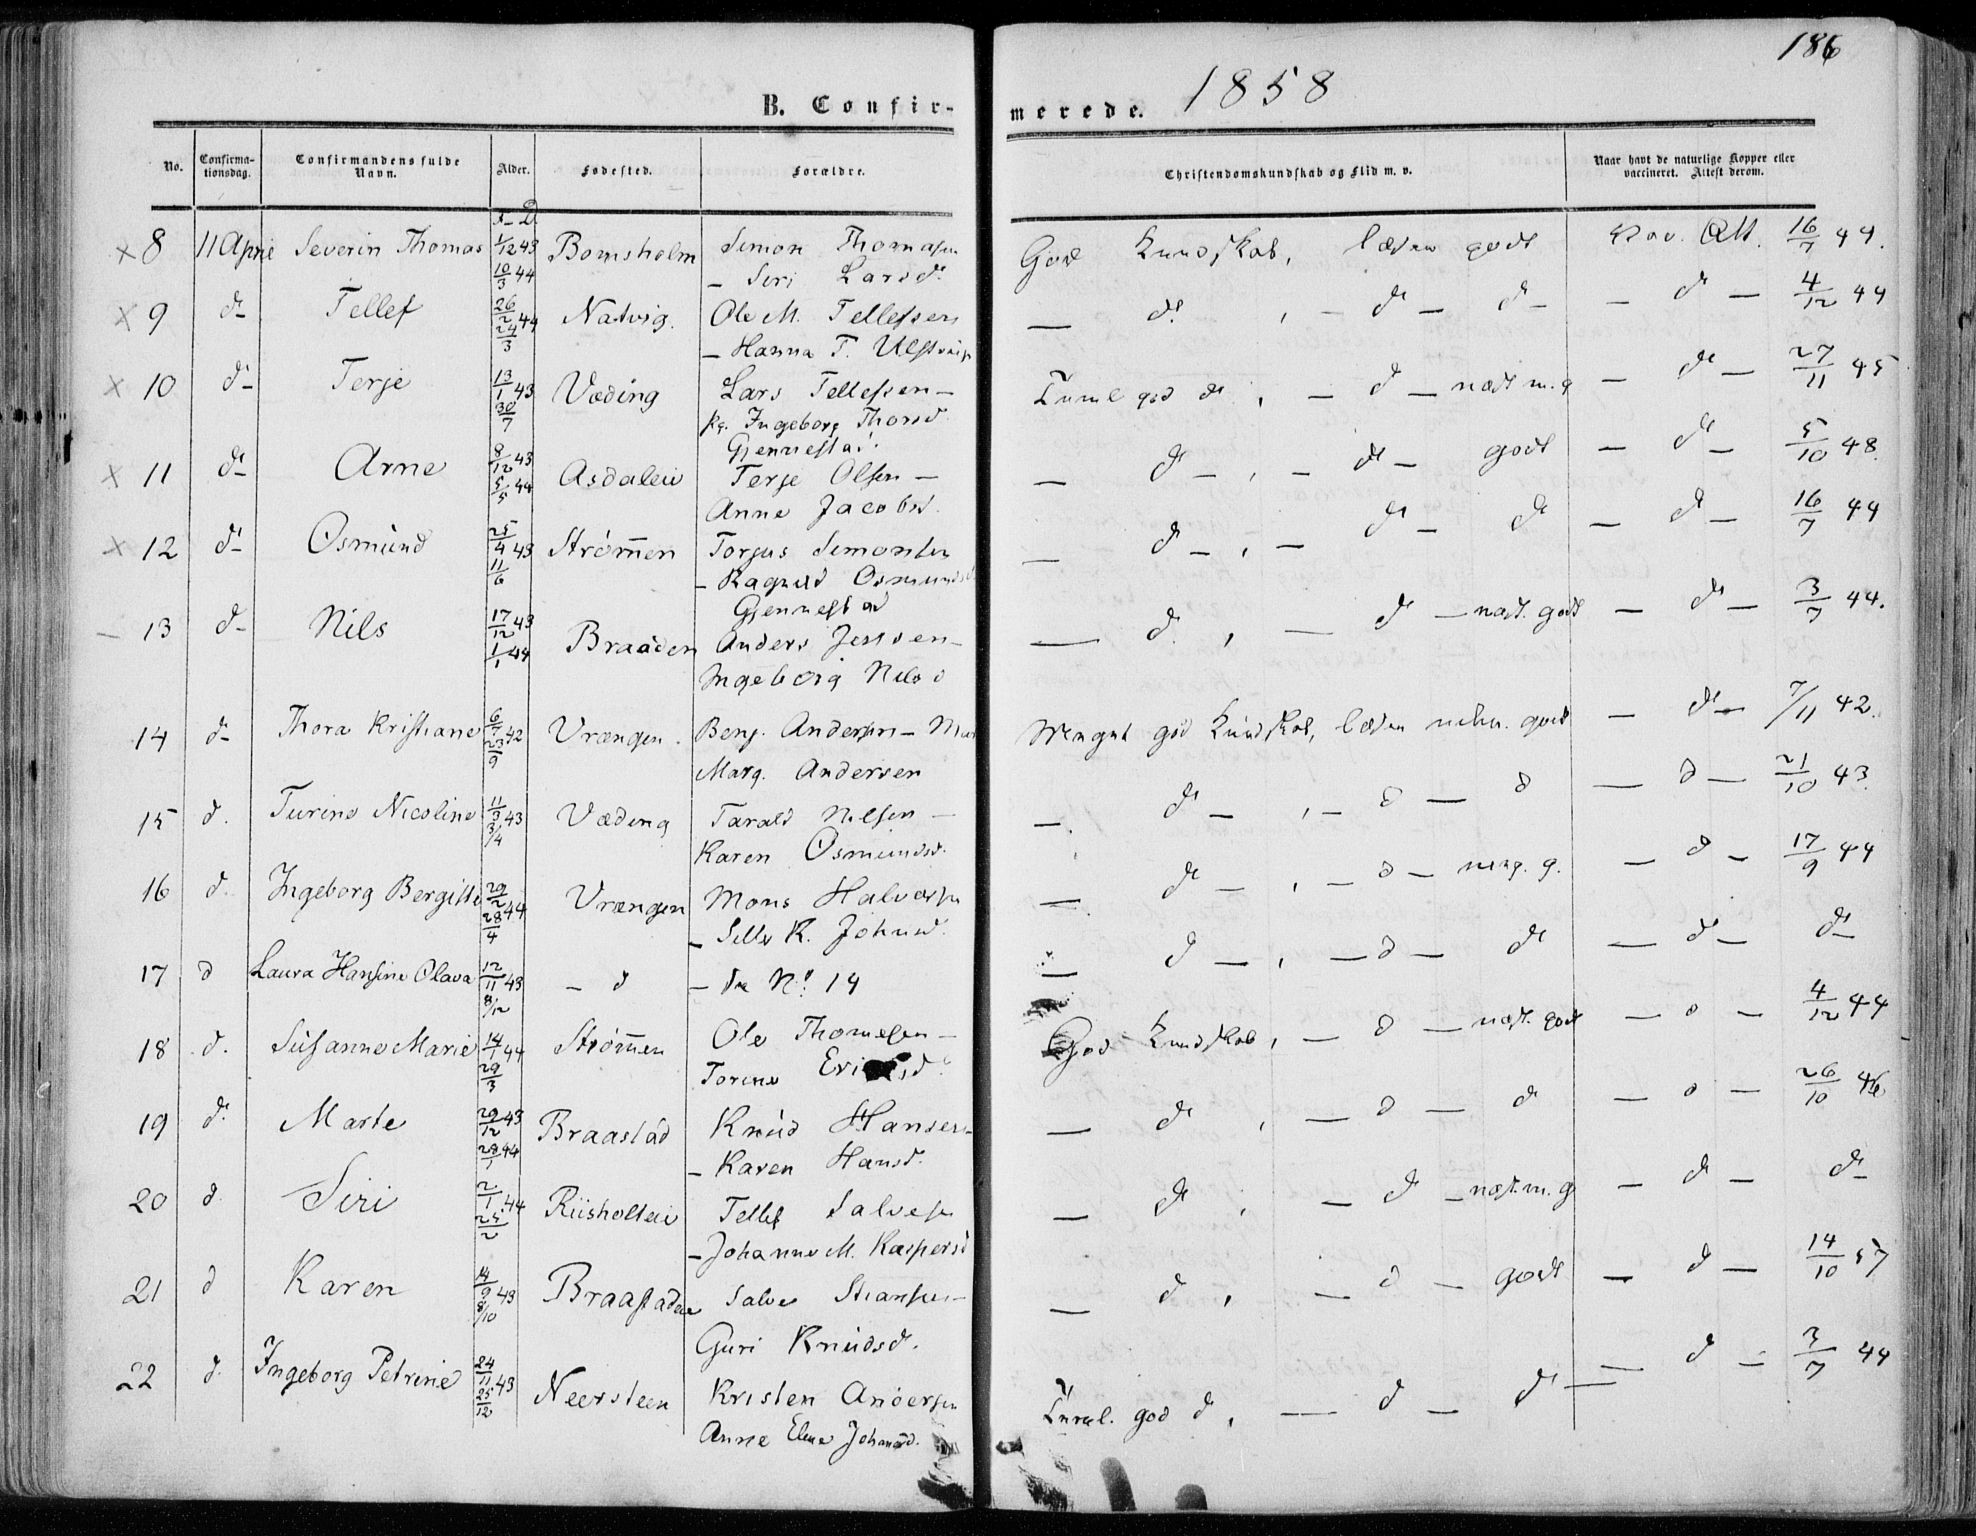 186
B. Confirmerede. 1858
No. Confirmationsdag. Confirmandens fulde Navn. Alder. Fødested. Forældre. Christendomskundskab og Flid m. v. Naar havt de naturlige Kopper eller vaccineret. Attest derom.
8 11 April Severin Thomas 1/12 43 10/3 44 Bomsholm Simon Thomasen God Kundskab, læsen godt Att. 16/7 44.
– Siri Larsd.
9 d– Tellef 26/2 44 24/3 Natvig. Ole M. Tellefsen — d. , – d – d – – d – 4/12 44
– Hanna T. Ulstrup
10 d– Terje 13/1 43 30/7 Væding Lars Tellefsen – Tteml god d , – d – næst m. g – d – 27/11 45
Ingeborg Thorsd.
Gjennestad.
11 d– Arne 8/12 43 5/5 44 Asdaleie Terje Olsen – — d – , – d – godt – d – 5/10 48.
Anne Jacobsd.
12 d– Osmund 25/4 43 11/6 Strømen Torjus Simonsen — d – , – d – d – d – 16/7 44
– Ragnild Osmundsd
Gjennestad
13 d– Nils 17/12 43 1/1 44 Braaden Anders Jensen – — d. , – d – næst. godt – d – 3/7 44.
Ingeborg Nilsd
14 d– Thora Kristiane 6/7 42 23/9 Vrængen. Benj. Andersen – Meget god Kundskab, læsen godt – d – 7/11 42.
Marg. Andersen
15 d. Turine Nicoline 11/3 43 3/4 Væding Tarald Nilsen – —. d – , – d – d — d – 21/10 43.
Karen Osmundsd.
16 d. Ingeborg Bergitte 29/2 44 28/4 Vrængen Mons Halvorsen — d – , – d – meg. g. – d – 17/9 44
– Sille K. Johnsd.
17 d Laura Hansine Olava 12/11 43 8/12 – d – No. 14 — d – , – d – d — d – d–
18 d. Susanne Marie 14/1 44 29/3 Strømen Ole Thomesen – God Kundskab, – d – næst. godt – d – 4/12 44
Torine d.
19 d. Marte 29/12 43 28/1 44 Braastad Knud Hansen — d , – d – d – d – 26/10 46
– Karen Hansd.
20 d. Siri 2/1 44 25/2 Riisholteie Tellef Salvesen — d , – d – næst. m. g – d – d–
– Johanne M. Kaspersd
21 d Karen 14/9 43 8/10 Braastadeie Salve – — d , – d – godt – d – 14/10 57
Guri Knudsd.
22 d. Ingeborg Petrine 24/11 43 25/12 Neersteen Kristen Andersen Tteml. god d , — d – d – – d – 3/7 44
Anne Elene Johannsd.